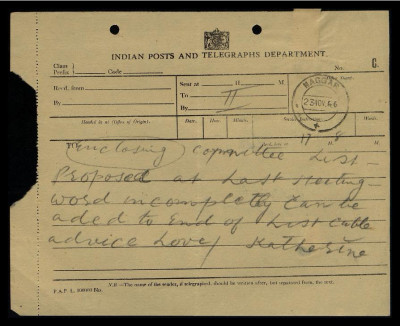 INDIAN POSTS AND TELEGRAPHS DEPARTMENT.
Class
Prefix
Code
No.
C.
Recd. from
By
Sent at H. M.
To
By
II
23 NOV. 46
Handed in at (Office of Origin).
Date. Hour. Minute.
TO
17 8
(Enclosing) Committee List -
Proposed at Last Meeting -
word incompletly Can be
aded to End of List Cable
advice Love/ Katherine
N.B.—The name of the sender, if telegraphed, should be written after, but separated from, the text.